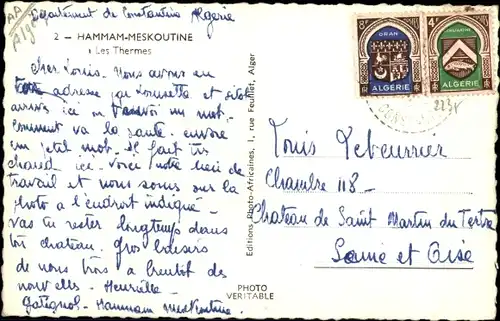 Département de Constantine Algérie
2 - HAMMAM-MESKOUTINE
Les Thermes
Cher Louis. Nous avons eu
adresse par Lousette et sitôt
arrivés ici on envoi un mot.
Comment va la santé. envoie
un petit mot. Il fait très
chaud ici. Voici notre lieu de
travail et nous sous sur la
photo à l'endroit indiqué
vas tu rester longtemps dans
ton chateau. Gros baisers
de nous trois à bientôt des
nouvelles. Henriette
Hammam Meskoutine
Editions Photo-Africaines, 1, rue Feuillet, Alger
PHOTO
VERITABLE
8F
ORAN
ALGERIE
4F
ALGERIE
2231
Louis
Chambre 118
Chateau de Saint Martin du Tertre
Seine et Oise